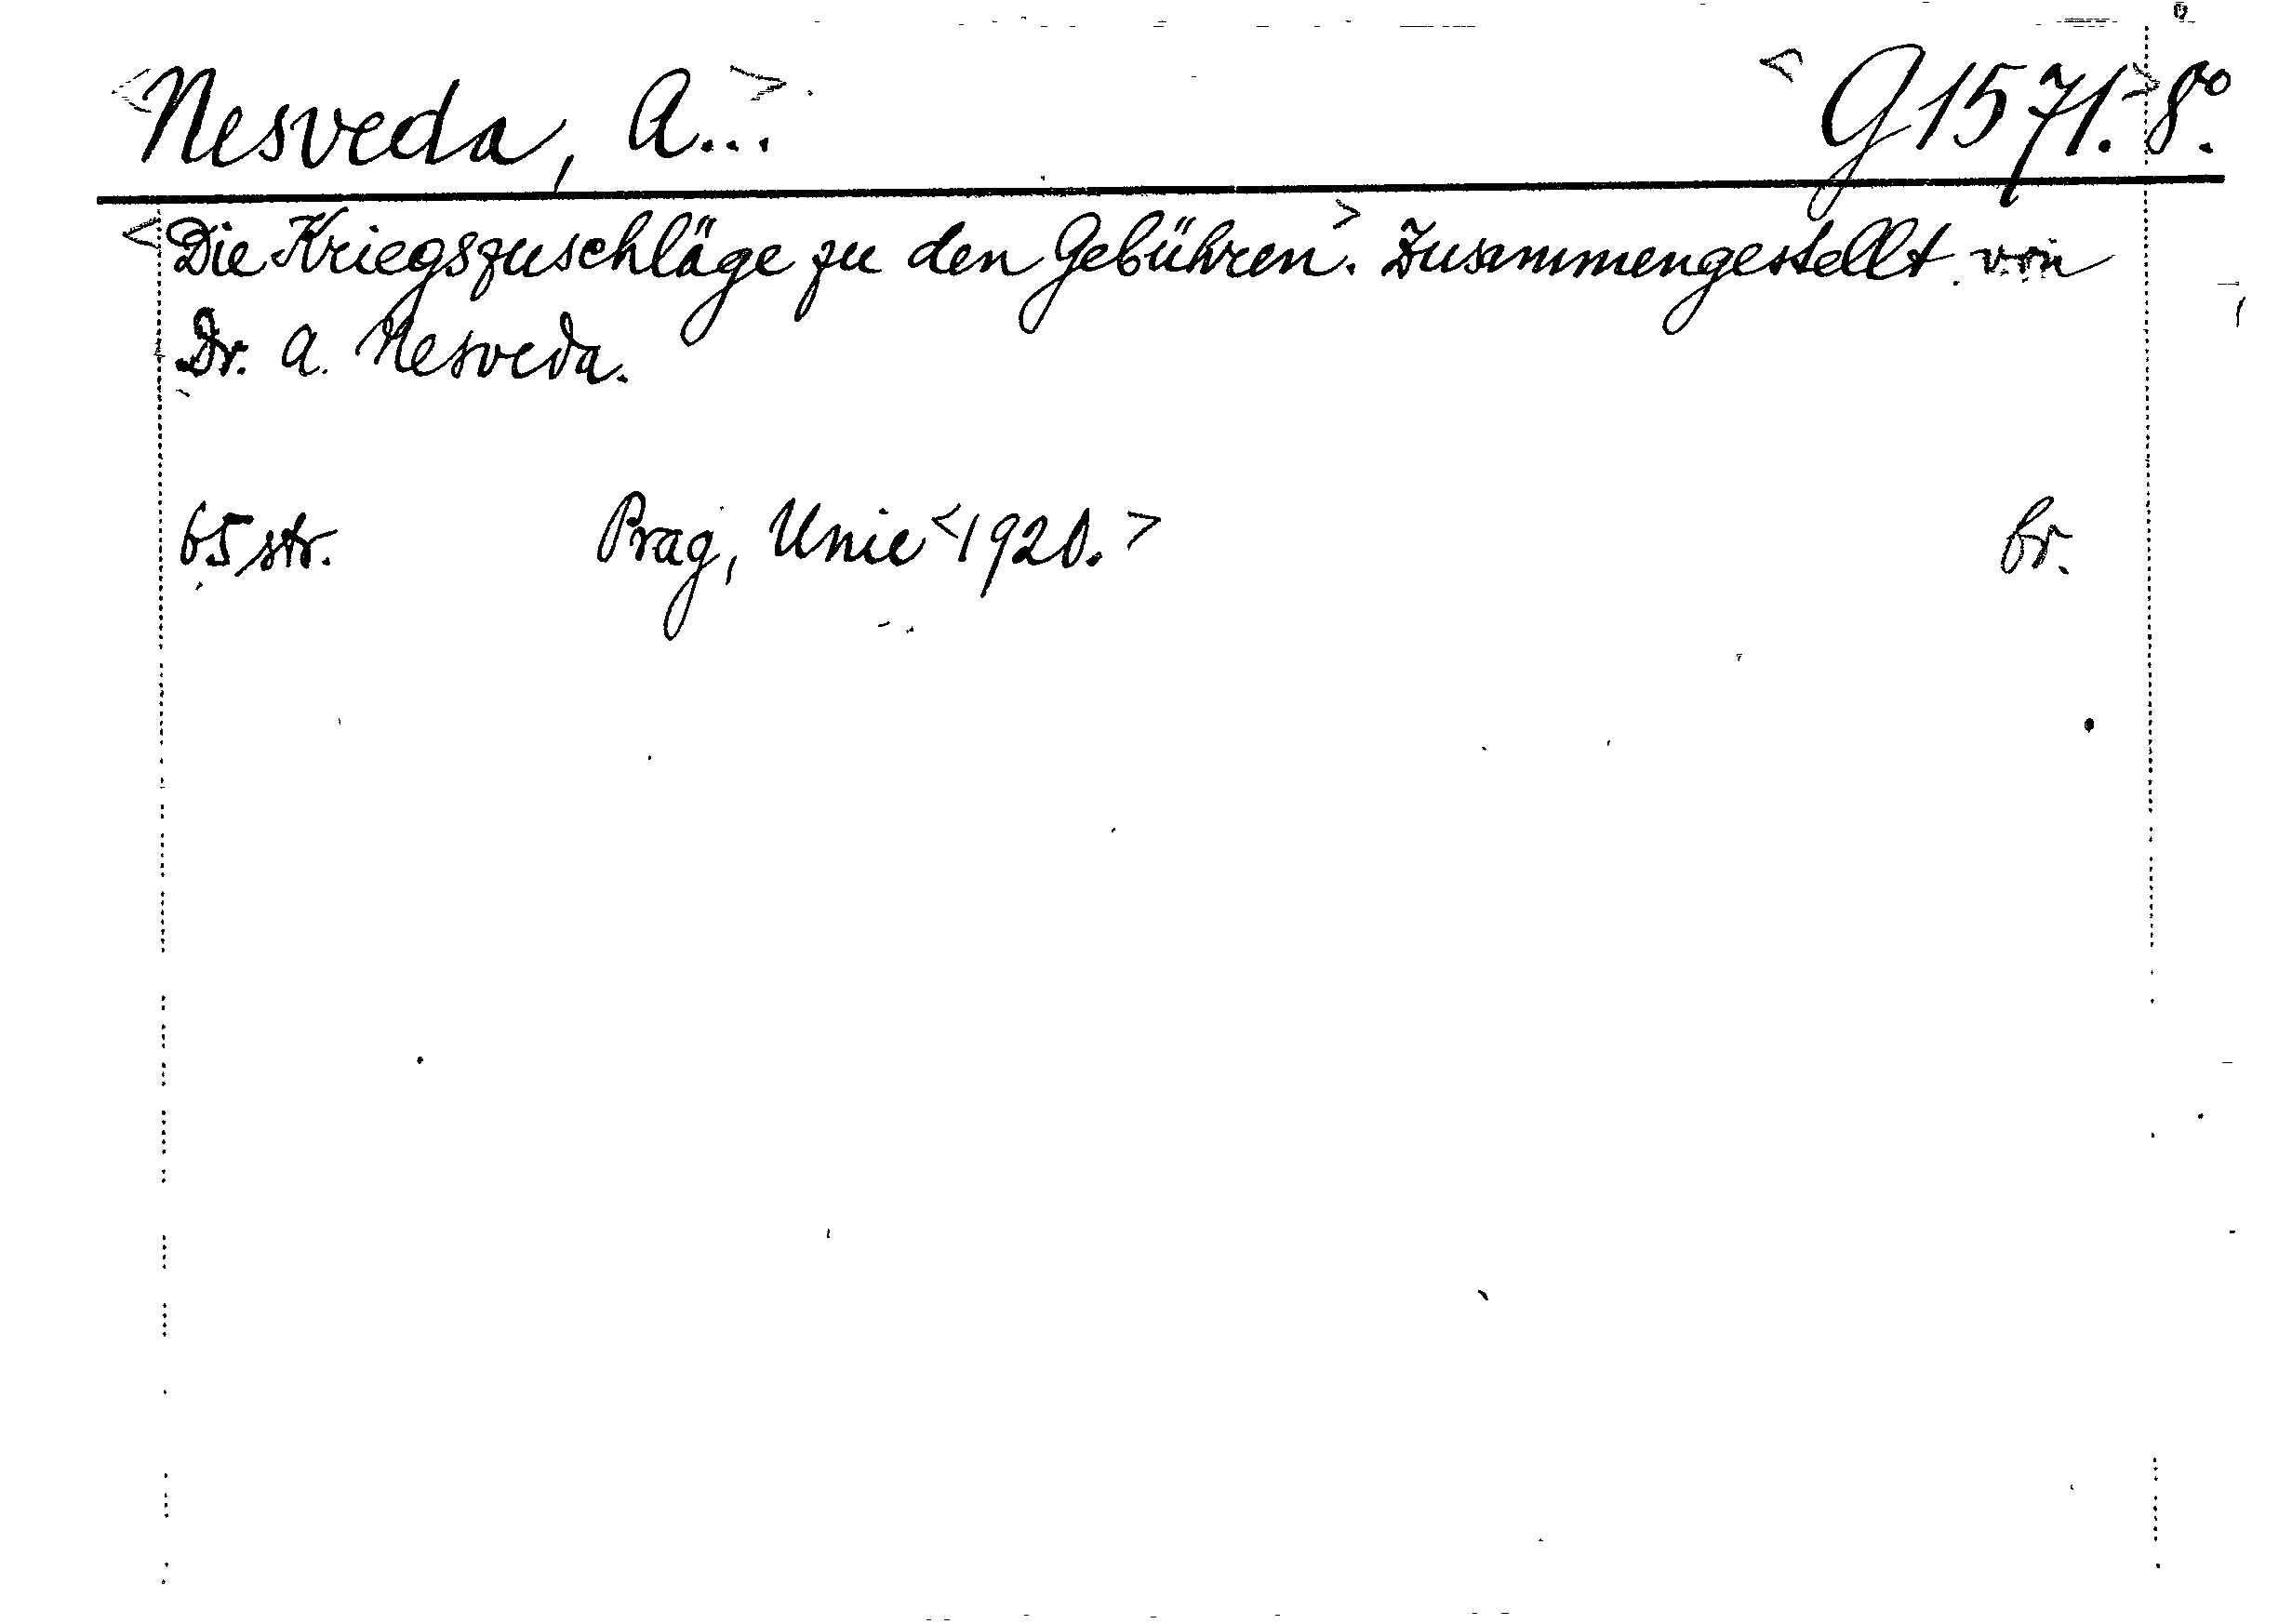 <Nesveda, A...> <G 1571.> 8°.
<Die Kriegszuschläge zu den Gebühren>. Zusammengestellt von
Dr. A. Nesveda.
65 str. Prag, Unie <1920.> br.